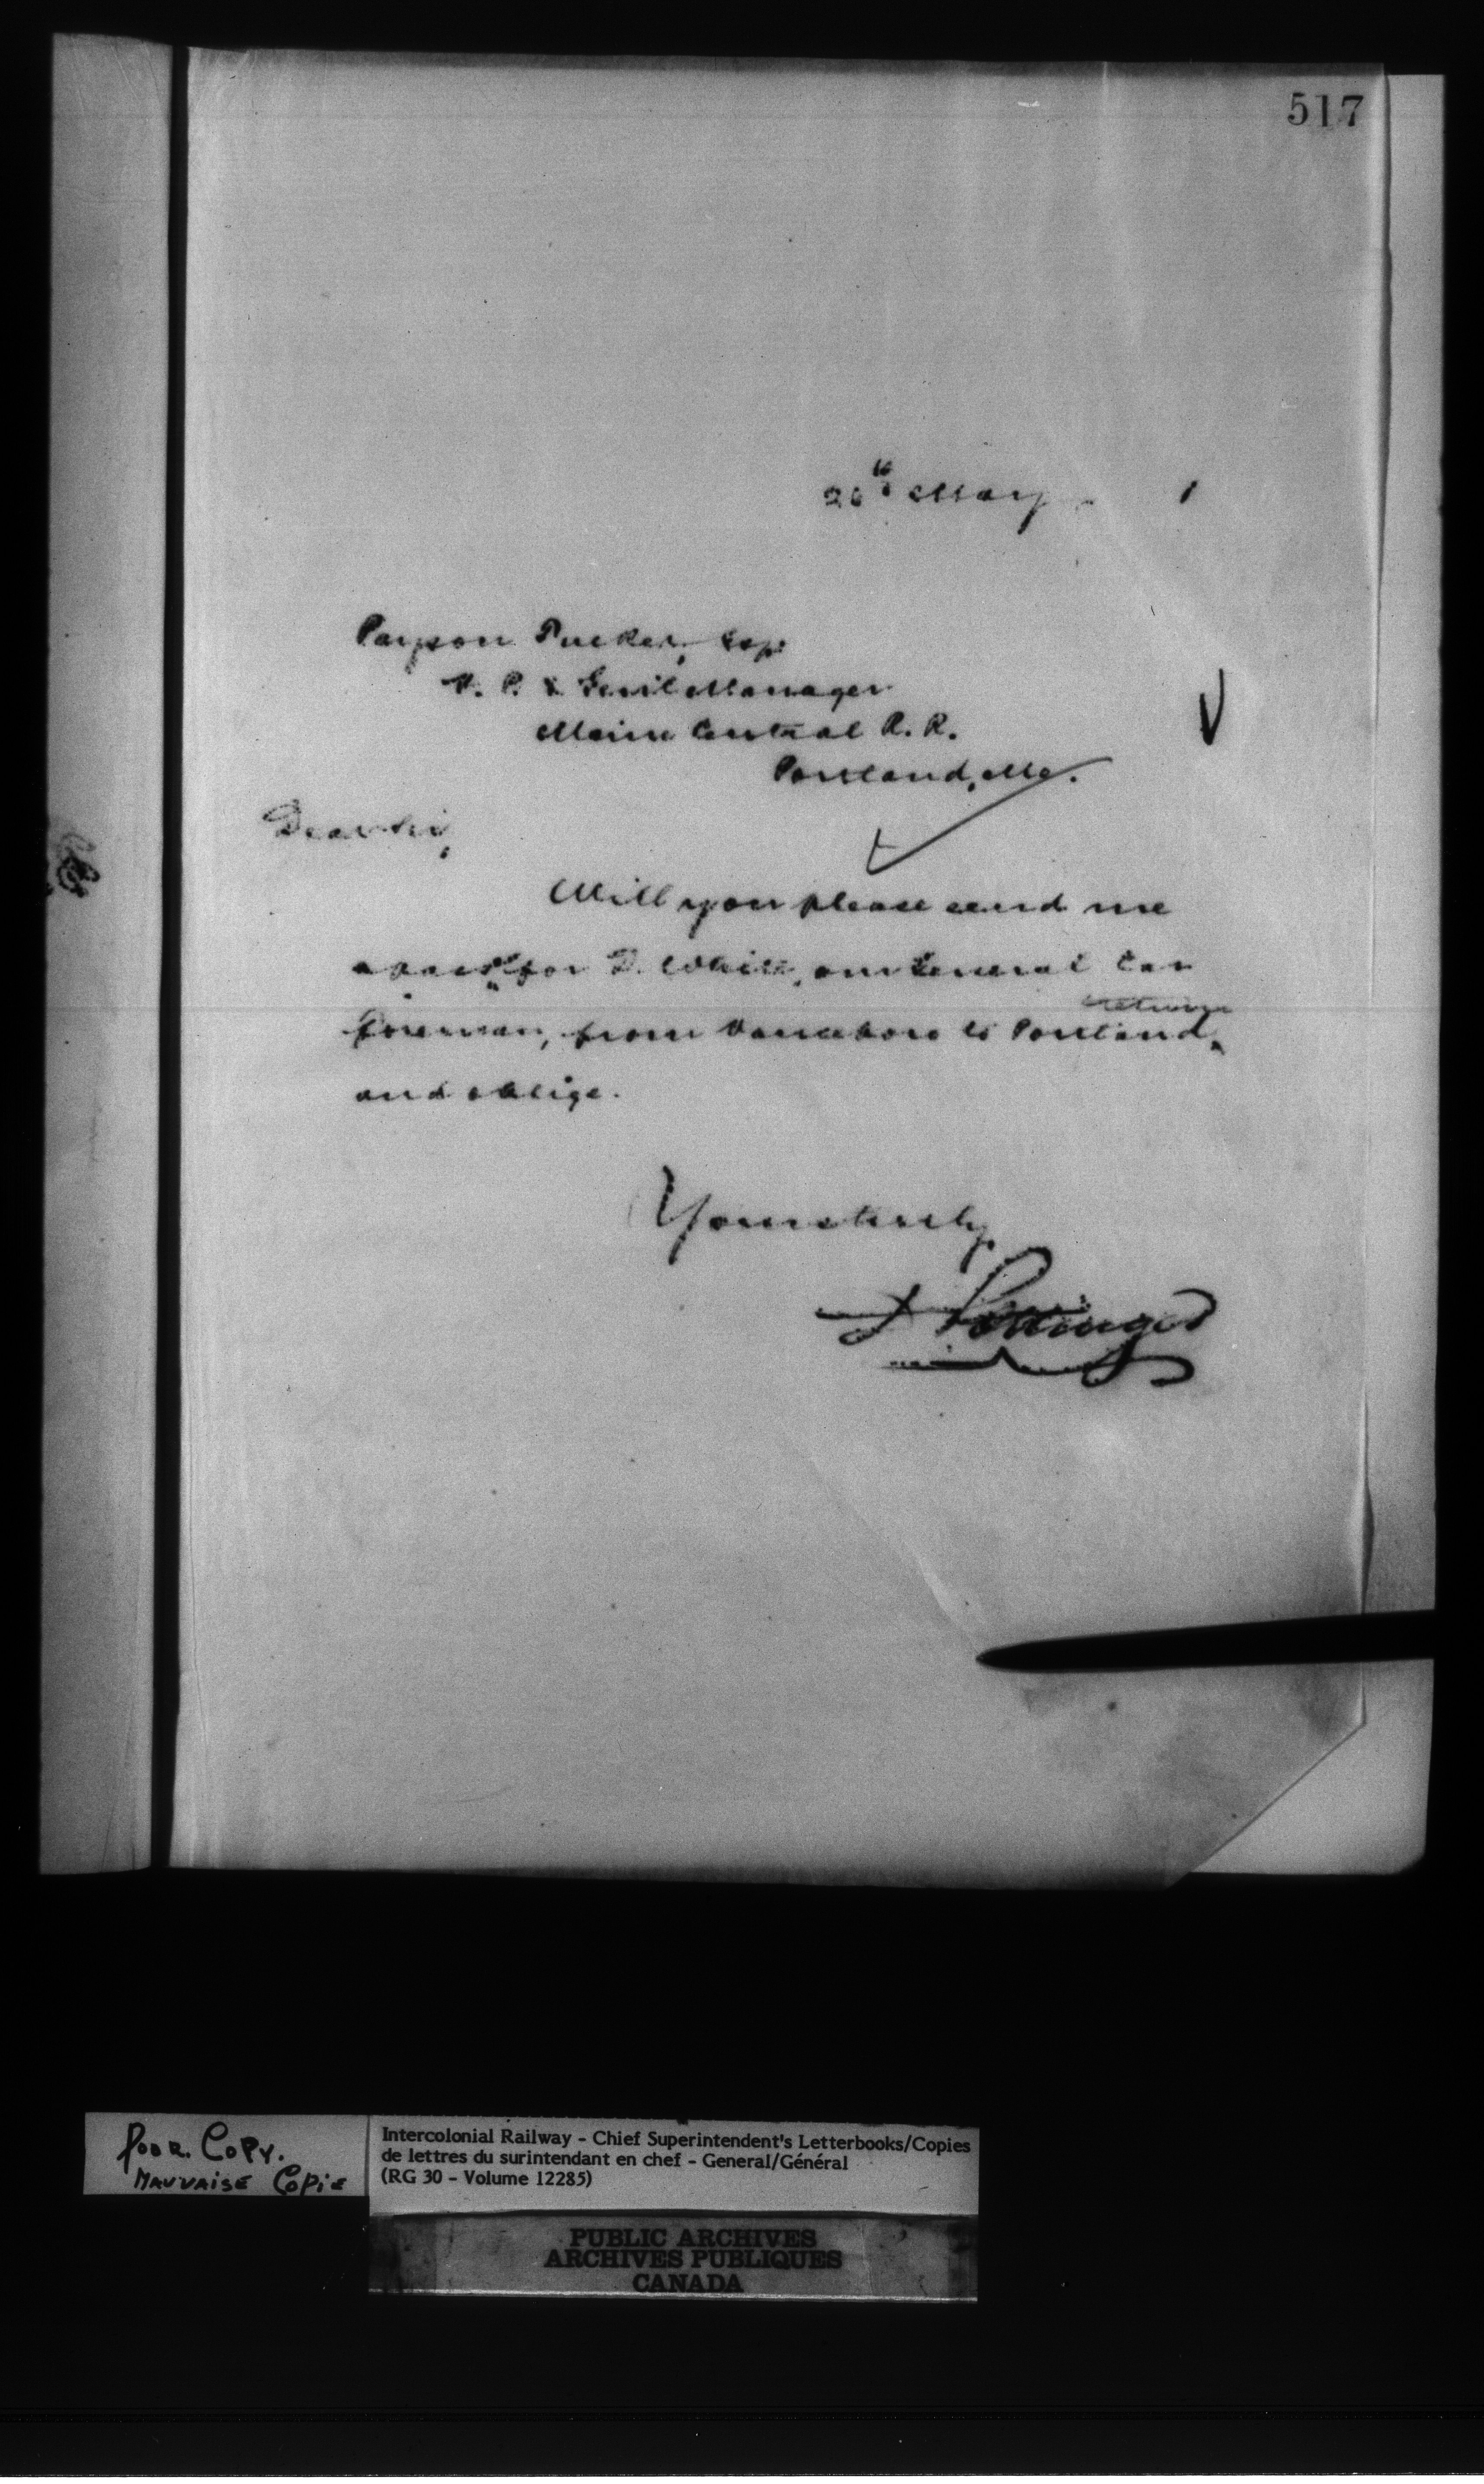 517
26th May 1
Payson Tucker, Esq:
V. P. & Gen'l Manager
Maine Central R. R.
Portland, Me.
Dear Sir,
Will you please send me
a pass for D. White, our General Car
return
Foreman, from Vanceboro to Portland,
and oblige.
Yours truly,
D Pottinger
Poor. Copy.
Mauvaise Copie
Intercolonial Railway - Chief Superintendent's Letterbooks/Copies
de lettres du surintendant en chef - General/Général
(RG 30 - Volume 12285)
PUBLIC ARCHIVES
ARCHIVES PUBLIQUES
CANADA